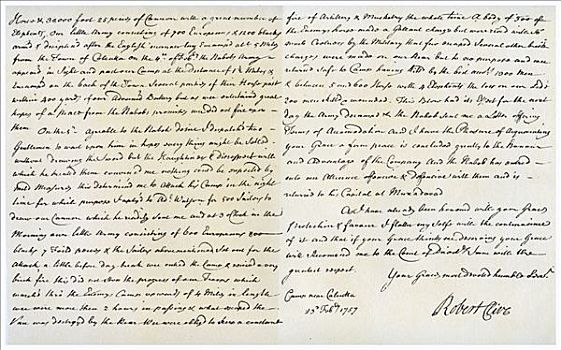 Horse & 30000 foot 25 pieces of Cannon with a great number of
Elephants, Our little Army consisting of 700 Europeans & 1200 blacks
arm'd & disciplin'd after the English manner lay Encamp'd abt 5 Miles
from the Town of Calcutta on the 4th of Feb. the Nabob's Army
appear'd in Sight and past our Camp at the distance of 1½ Miles &
Encamp'd on the back of the Town. Several parties of their Horse past
within 400 yards of our Advanced Battery but as we entertained great
hopes of a peace from the Nabob's promises we did not fire upon
them
On the 5th agreable to the Nabob's desire I dispatch'd two
Gentlemen to wait upon him in hopes every thing might be Settled
without drawing the Sword but the Haughtiness & disrespect with
which he treated them convinced me nothing could be expected by
Mild Measures, this determined me to attack his Camp in the night
time for which purpose I apply'd to Adl Watson for 500 Sailors to
draw our Cannon which he readily sent me and at 3 oClock in the
Morning our little Army consisting of 600 Europeans 500
blacks 7 Field pieces & the Sailors abovementioned Set out for the
Attack, a little before day break we enter'd the Camp & received a very
brisk fire this did not stop the progress of our Troops which
march'd thro' the Enemy's Camp upwards of 4 Miles in length
we were more than 2 hours in passing & what escaped the
Van was destroyed by the Rear. We were obliged to keep a constant
fire of Artillery & Musketry the whole time A body of 300 of
the Enemy's horse made a Gallant charge but were reced with
by the Military that few escaped Several other brisk
charges were made on our Rear but to no purpose and we
returned safe to Camp having kill'd by the best accts 1000 Men
& between 5 and 600 Horse with 4 Elephants the loss on our side
200 men kill'd & wounded. This blow had its Effect for the next
day the Army decamped & the Nabob sent me a Letter offering
Terms of Accomodation and I have the Pleasure of Acquainting
your Grace a firm peace is concluded greatly to the Honour
and Advantage of the Company and the Nabob has enter'd
into an Alliance offensive & defensive with them and is
returned to his Capital at Muxadavad
As I have already been honor'd with your Grace's
protection & favour I flatter my self with the continuance
of it and that if your Grace thinks me deserving your Grace
will Recommend me to the Court of Directors I am with the
greatest respect.
Your Graces most devoted humble Servt
Camp near Calcutta
23d Feby 1757
Robert Clive